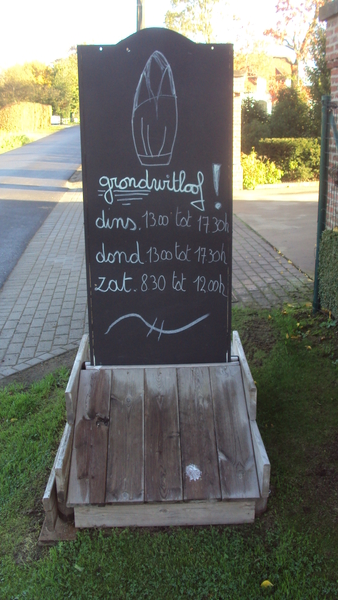 grondwitloof!
dins. 13.00 tot 17.30h
dond 13.00 tot 17.30h
zat. 8.30 tot 12.00h